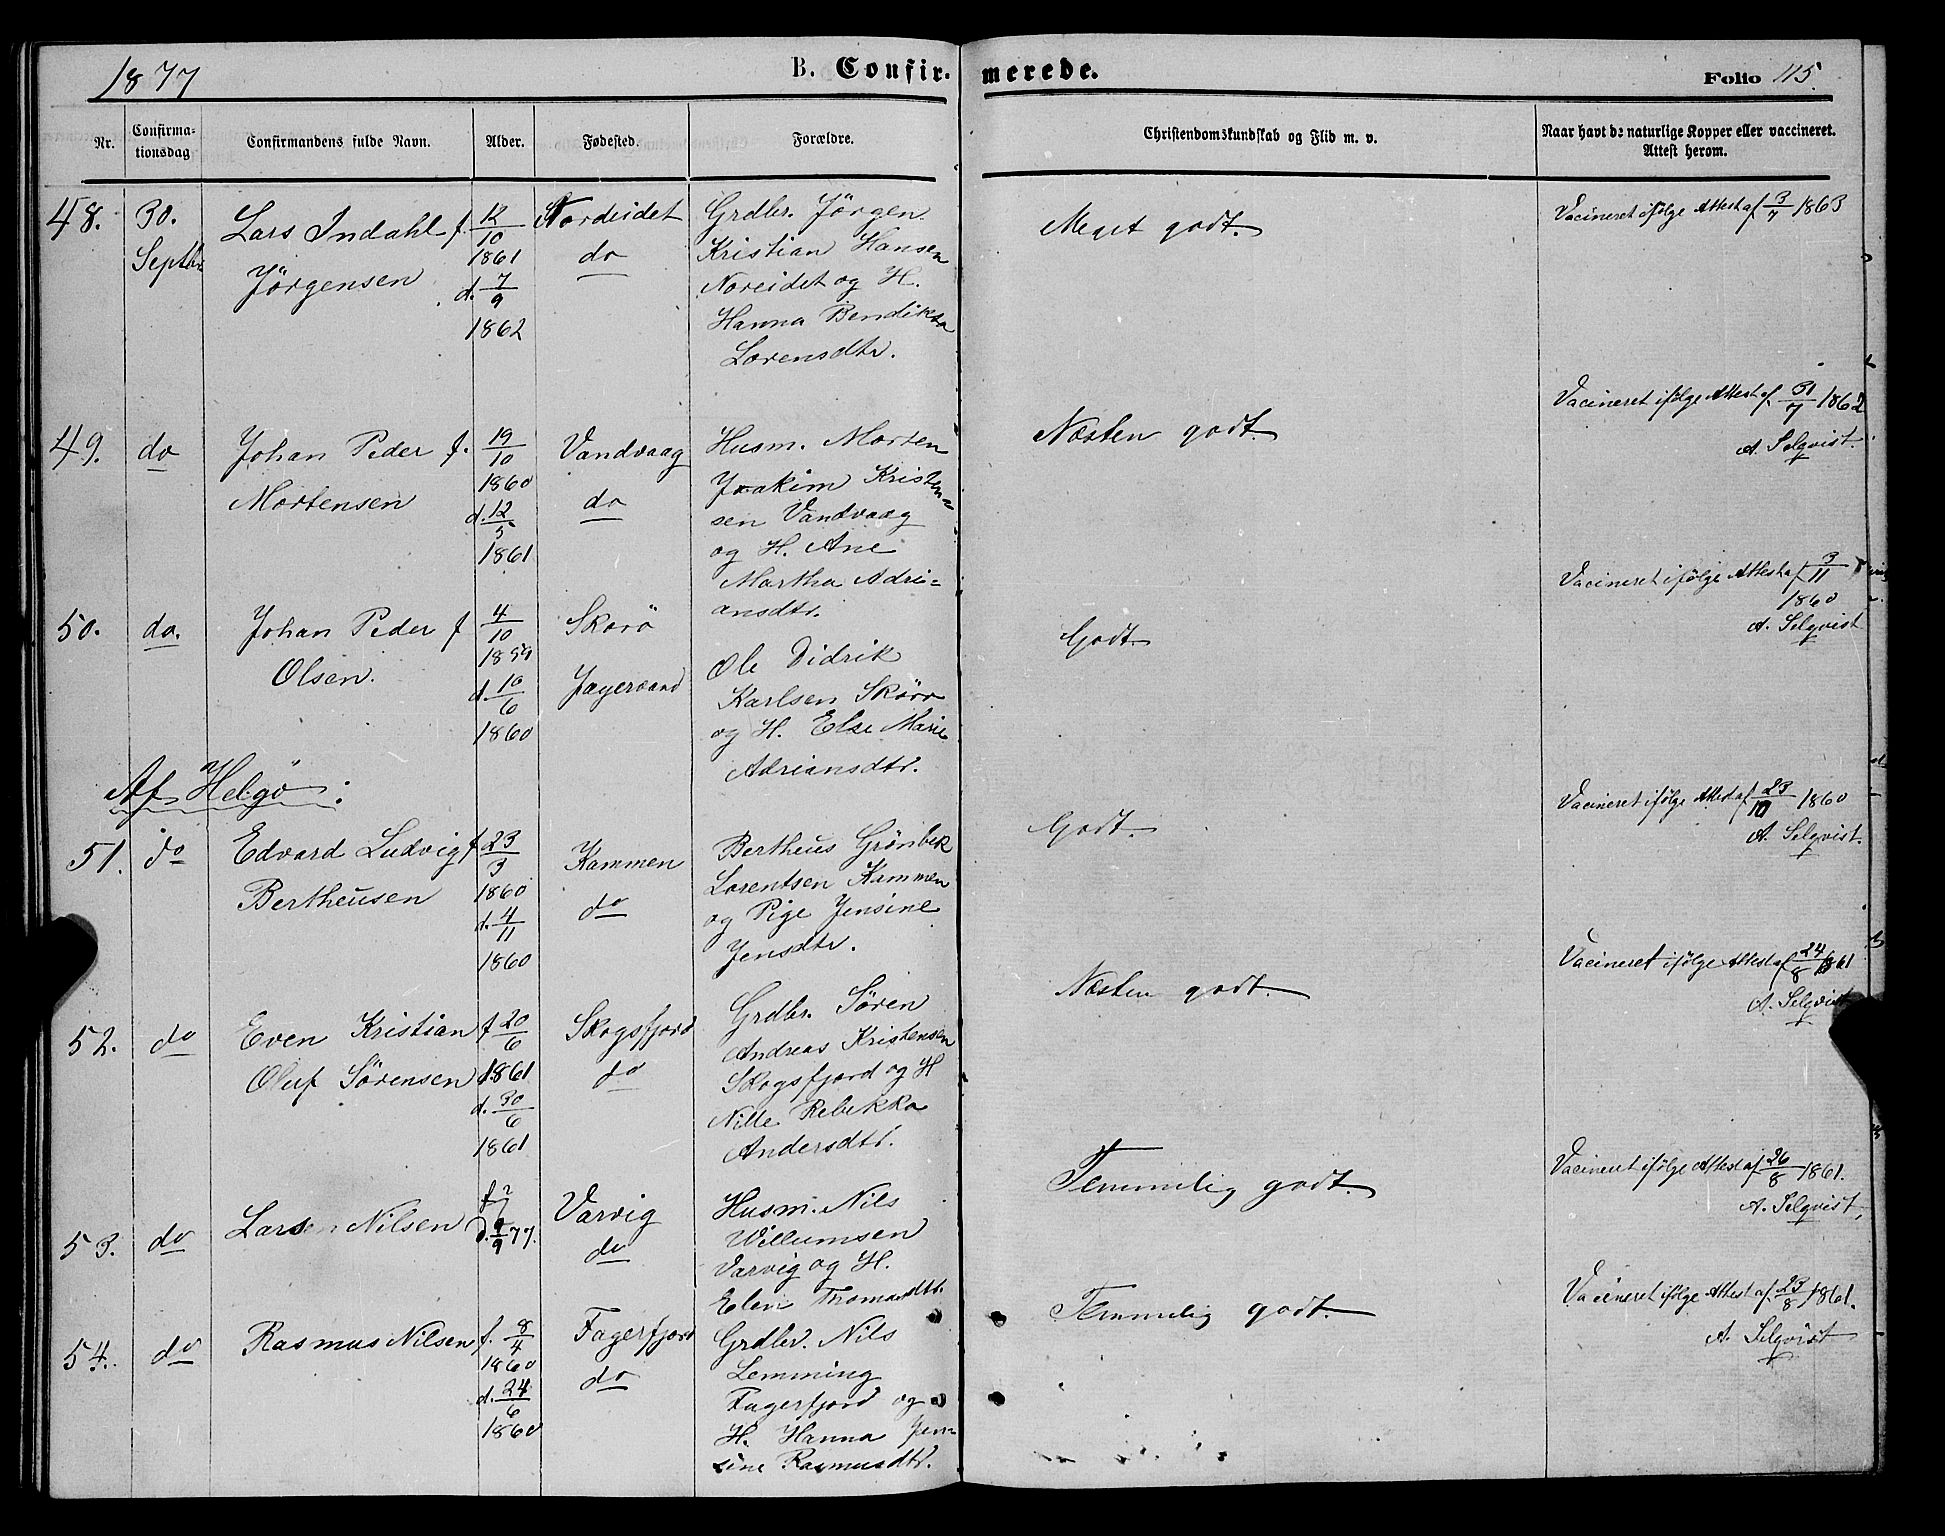 1877
B. Confirmerede.
Folio 115.
Nr.
Confirma-
tionsdag
Confirmandens fulde Navn.
Alder.
Fødested.
Forældre.
Christendomskundskab og Flid m. v.
Naar havt de naturlige Kopper eller vaccineret.
Attest herom.
48.
30.
Septbr
Lars Indahl
Jörgensen
f. 12/10
1861
d. 7/9
1862
Nordeidet
do
Grdbr. Jörgen
Kristian Hansen
Noreidet og H.
Hanna Bendikta
Lorensdtr.
Meget godt.
Vacineret ifölge Attest af 3/7 1863
49.
do
Johan Peder
Mortensen
f. 19/10
1860
d. 12/5
1861
Vandvaag
do
Husm. Morten
Joakim Kristen-
sen Vandvaag
og H. Ane
Martha Adri-
ansdtr.
Næsten godt.
Vacineret ifölge Attest af 31/7 1862
A. Selqvist.
50.
do.
Johan Peder
Olsen.
f 4/10
1859
d. 10/6
1860
Skorö
Jægervand
Ole Didrik
Karlsen Skörö
og H. Else Marie
Adriansdtr.
Godt.
Vacineret ifölge Attest af 3/11
1860
A. Selqvist
Af Helgö:
51.
do
Edvard Ludvig
Bertheusen
f 23/3
1860
d. 4/11
1860
Kammen
do
Bertheus Grönbek
Lorentsen Kammen
og Pige Jensine
Jensdtr.
Godt.
Vacineret ifölge Attest af 23/10 1860
A. Selqvist.
52.
do
Even Kristian
Oluf Sörensen
f 20/6
1861
d. 30/6
1861
Skogsfjord
do
Grdbr. Sören
Andreas Kristensen
Skogsfjord og H
Nille Rebekka
Andersdtr.
Næsten godt.
Vacineret ifölge Attest af 24/8 1861
A. Selqvist
53.
do
Lars Nilsen
f ?
Varvig
do
Husm. Nils
Willumsen
Varvig og H.
Elen Thomasdtr.
Temmelig godt.
Vacineret ifölge Attest af 26/8 1861.
A. Selqvist.
54.
do
Rasmus Nilsen
f. 8/4
1860
d. 24/6
1860
Fagerfjord
do
Grdbr. Nils
Lemming
Fagerfjord og
H. Hanna Jen-
sine Rasmusdtr.
Temmelig godt.
Vacineret ifölge Attest af 23/8 1861.
A. Selqvist